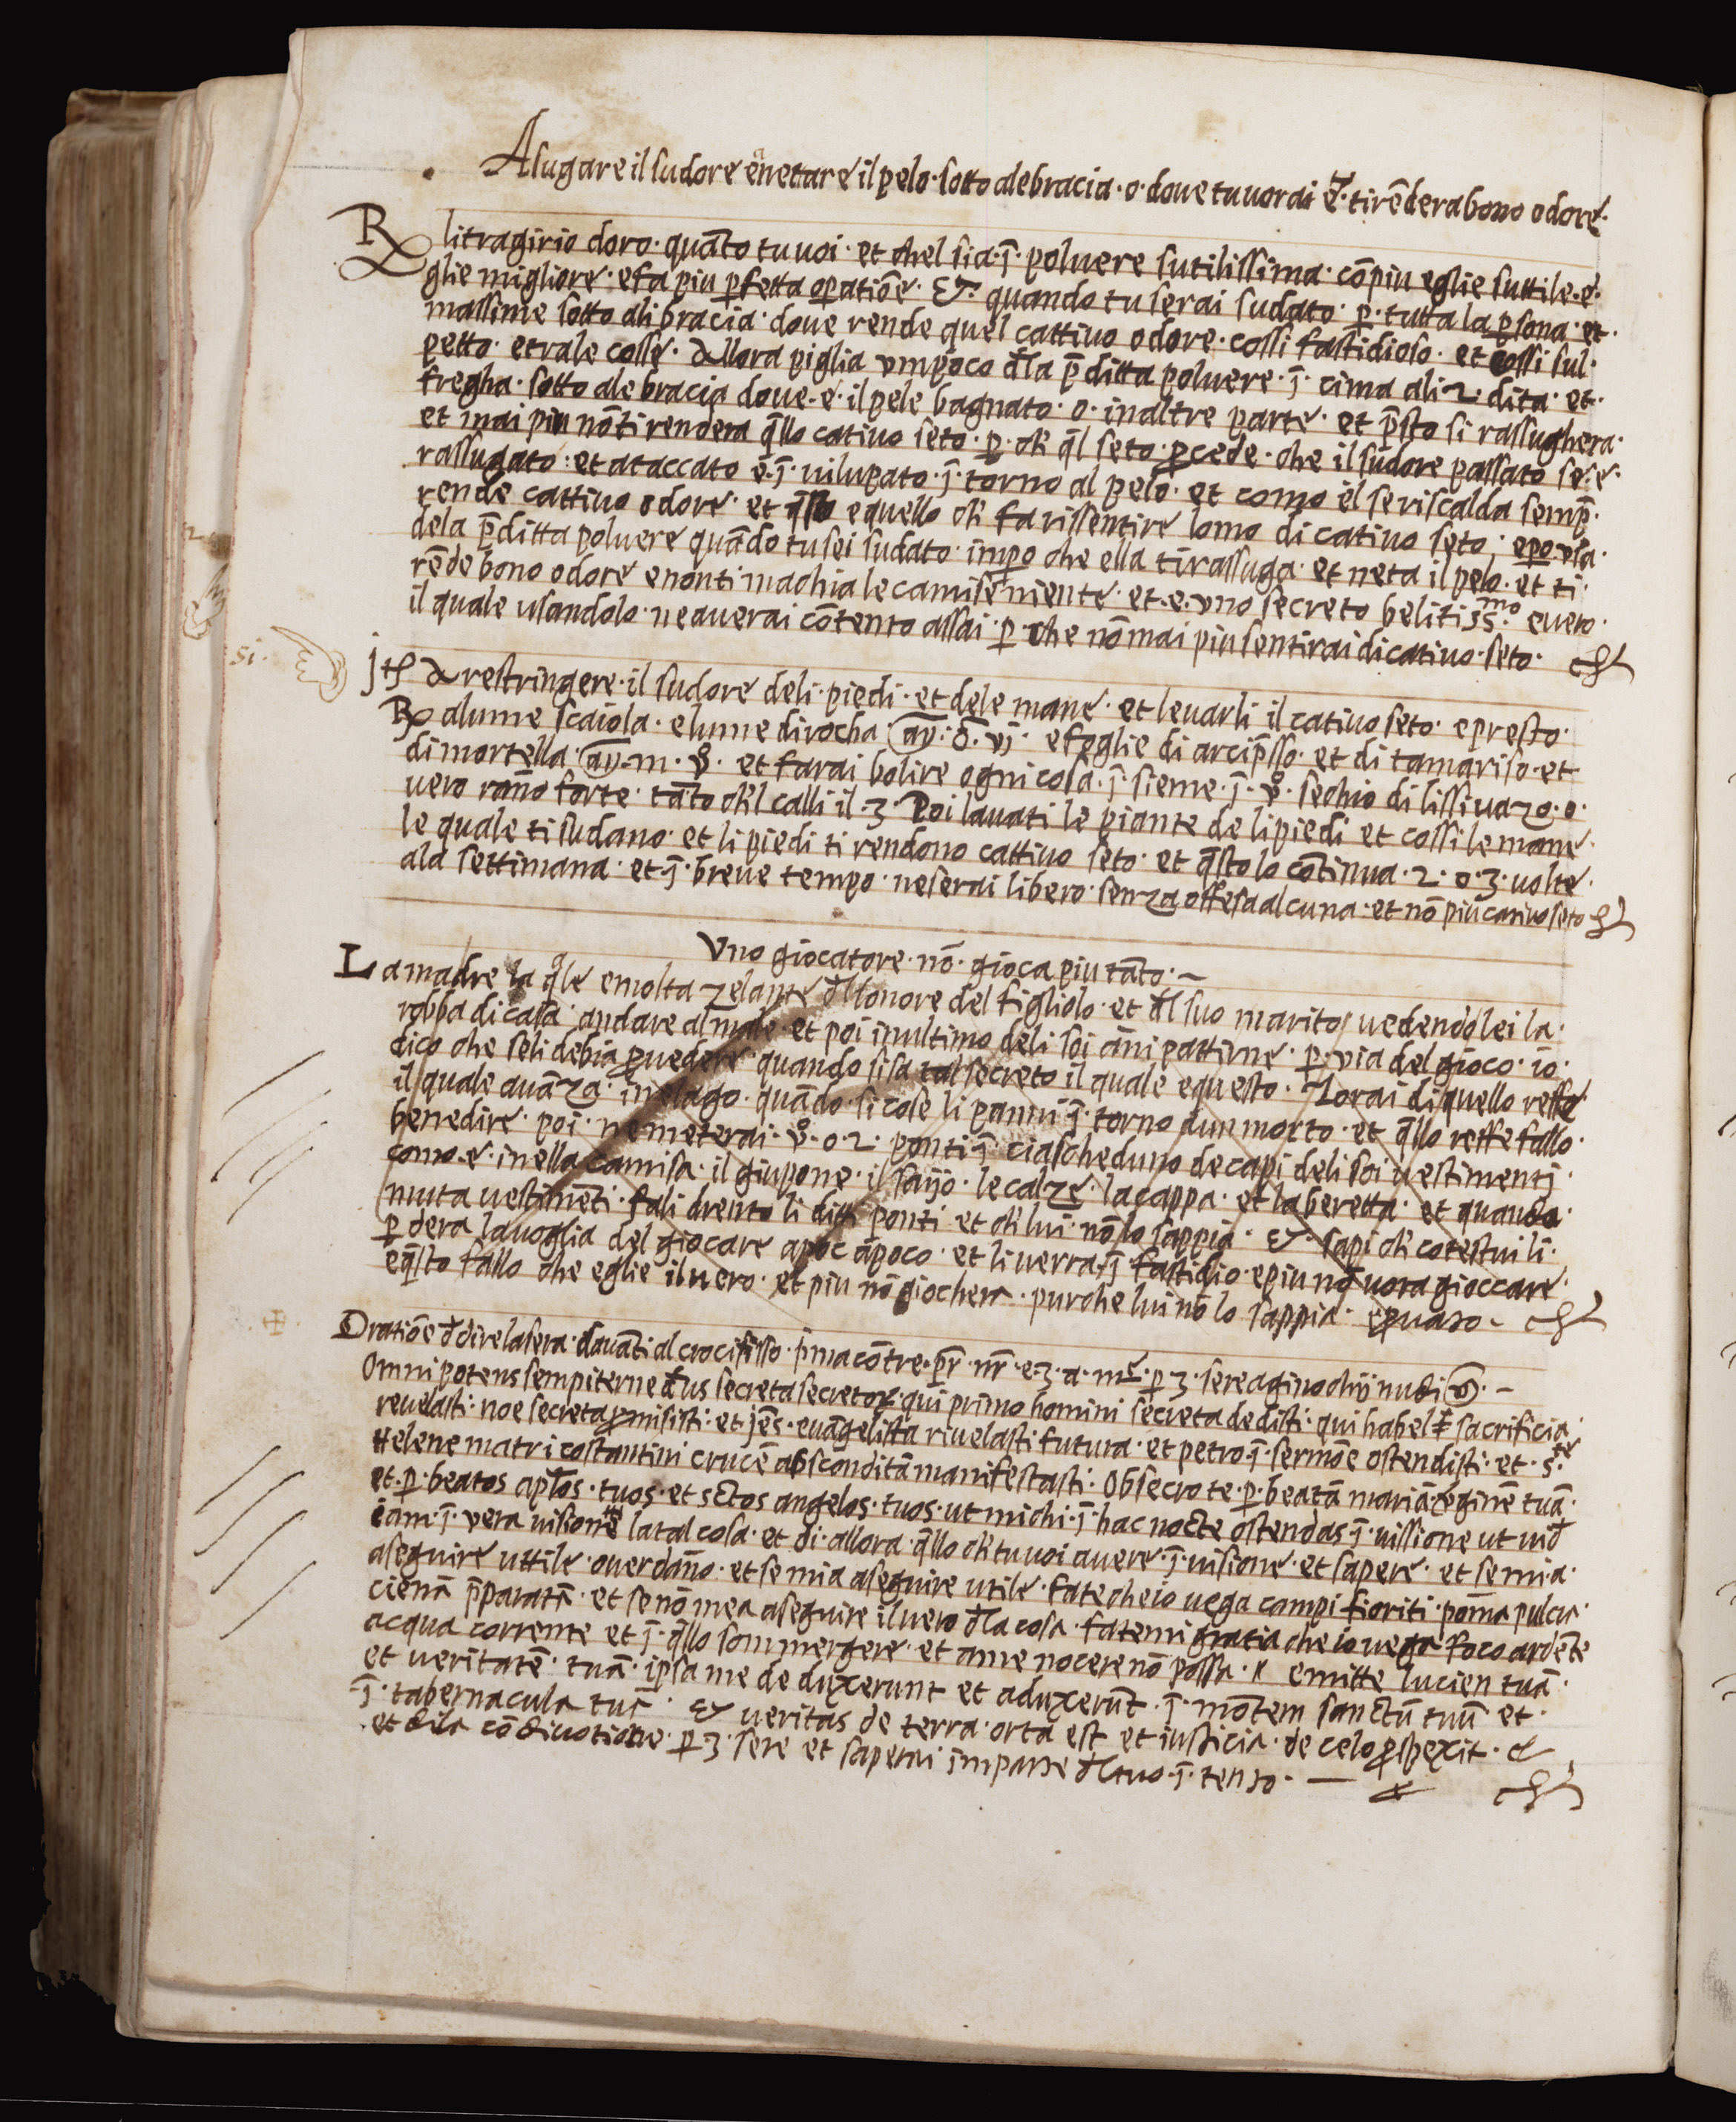 Asugare il sudore e netare il pelo · sotto ale bracia · o · doue tu uorai · tirēdera bono odore ·
℞ litragirio doro · quāto tu uoi · et chel sia · ī · poluere sutilissima · cō piu eglie suttile · e ·
glie migliore · e fa piu ꝑfetta oꝑatiōe · & · quando tu serai sudato · ꝑ · tutta la ꝑsona · et ·
massime sotto ali bracia · doue rende quel cattiuo odore · cossi fastidioso · et cossi sul ·
petto · et tale cosse · Allora piglia vm poco đla p̄ditta poluere · ī · cima ali · 2 · dita · et ·
fregha · sotto ale bracia doue · e · il pele bagnato · o · in altre parte · et p̄sto si rassughera ·
et mai piu nō ti rendera q̄llo catiuo seto · ꝑ · ch̄ q̄l seto · ꝓcede · che il sudore passato se · e ·
rassugato · et ataccato e · ī · uilupato · ī · torno al pelo · et como el se riscalda semp̄ ·
rende cattiuo odore · et q̄sto e quello ch̄ fa rissentire lomo di catiuo seto · e ꝑo · vsa ·
dela p̄ditta poluere quādo tu sei sudato · imꝑo che ella ti rassuga · et neta il pelo · et ti ·
rēde bono odore e non ti machia le camise niente · et · e · vno secreto belitissmo · e uero ·
il quale usandolo · ne auerai cōtento assai · ꝑ che nō mai piu sentirai di catiuo · seto ·
si · Jtē A restringere · il sudore deli · piedi · et dele mane · et leuarli il catiuo seto · e presto ·
℞ alume scaiola · e lume di rocha · aā · ō · vj · e foglie di arcip̄sso · et di tamariso · et
di mortella · aā · m · · et farai bolire ogni cosa · ī · sieme · ī · · sechio di lissiuazo · o ·
uero rāno forte · tāto ch̄l calli il · 3 · Poi lauati le piante de li piedi et cossi le mane ·
le quale ti sudano · et li piedi ti rendono cattiuo seto · et q̄sto lo cōtinua · 2 · o · 3 · uolte ·
ala settimana · et · ī · breue tempo · ne serai libero · senza offesa alcuna · et nō piu catiuo seto
Vno giocatore · nō · gioca piu tāto · ~
La madre la q̄le e molta zelante đl lonore del figliolo · et đl suo marito / uedendo lei la ·
robba di casa · andare al male · et poi in ultimo deli soi āni pattirne · ꝑ · via del gioco · io ·
dico che seli debia ꝓuedere · quando si sa tal secreto il quale e questo · Torai di quello reffe ·
il quale auāza · in elago · quādo · si cose li panni · ī · torno dun morto · et q̄llo reffe fallo ·
benedire · poi · ne meterai · · o · 2 · ponti · ī · ciascheduno de capi deli soi uestimenti ·
como · e · in ella camisa · il giupone · il saijo · le calze · la cappa · et la beretta · et quando ·
muta uestimēti · fali drento li ditti ponti · et ch̄ lui · nō lo sappia · & · sapi ch̄ cotestui li ·
ꝑdera la uoglia del giocare apoc apoco · et li uerra · ī · fastidio · e piu nō uora gioccare ·
e q̄sto fallo che eglie il uero · et piu nō giochera · purche lui nō lo sappia ·
Oratiōe đ dire la sera · dauāti al crocifisso · · pr̄ · nr̄ · e · 3 · a · · ꝑ 3 · sere a ginochij nudi ·
Omnipotens sempiterne đus secreta secretoꝝ · qui primo homini secreta dedisti · qui habel sacrificia
reuelasti · noe secreta ꝓmisisti · et · euāgelista riuelasti futura · et petro · ī · sermōe ostendisti · et · ste
Helene matri costantini crucē abscōditā manifestasti · Obsecro te · ꝑ · beatā mariā reginē tuā ·
et · ꝑ · beatos aplōs · tuos · et sctos angelos · tuos · ut michi · ī · hac nocte ostendas · ī · uissione ut uid
eam · ī · vera uisione la tal cosa · et di · allora · q̄llo ch̄ tu uoi auere · ī · uisione · et sapere · et se mi a ·
aseguire uttile · ouer dāno · et se mi a aseguire utile · fate che io uega campi fioriti · poma pulcra ·
cienā p̄paratā · et se nō me a aseguire il uero đla cosa · fatemi gratia che io uega foco ardēte
acqua corrente et · ī · q̄llo sommergere · et a me nocere nō possa · emitte lucien tuā ·
et ueritatē · tuā · ipsa me de duxerunt et aduxerūt · ī · mōtem sanctū tuū et ·
ī · tabernacula tua · & ueritas de terra · orta est et iusticia · de celo ꝓspexit ·
et dila cō diuotione · ꝑ 3 · sere et saperai · đl tuo · ī · tento ·